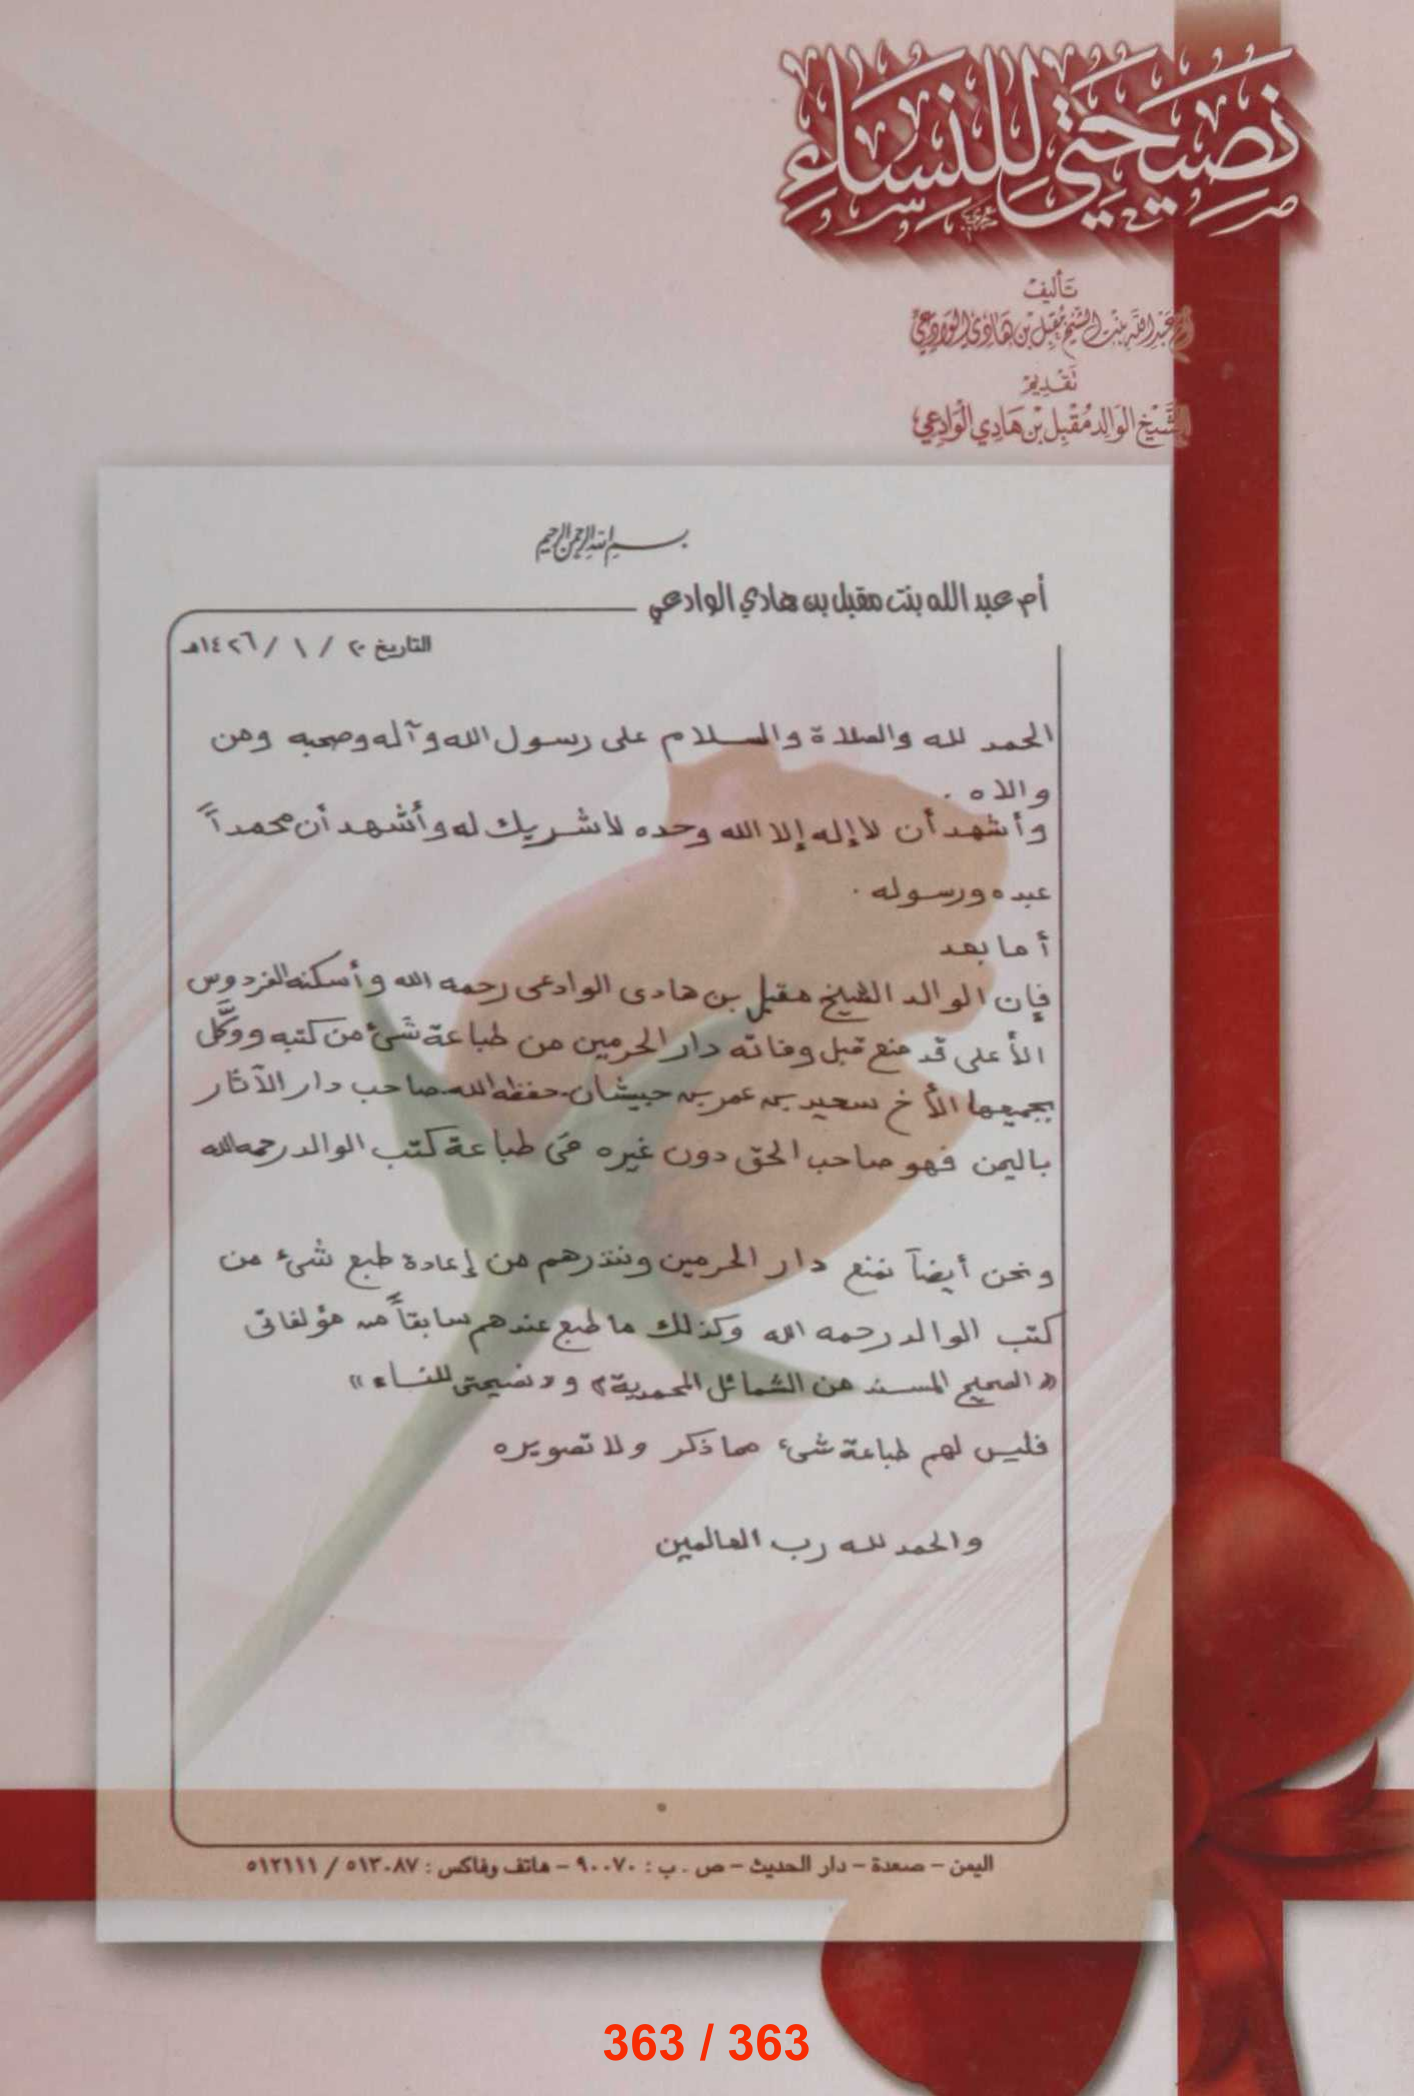 نصيحتي للنساء
تأليف
أم عبد الله بنت الشيخ مقبل بن هادي الوادعي
تقديم
الشيخ الوالد مقبل بن هادي الوادعي
بسم الله الرحمن الرحيم
أم عبد الله بنت مقبل بن هادي الوادعي
التاريخ ٢٠ / ١ / ١٤٢٦هـ
الحمد لله والصلاة والسلام على رسول الله وآله وصحبه ومن
والاه .
وأشهد أن لا إله إلا الله وحده لا شريك له وأشهد أن محمداً
عبده ورسوله .
أما بعد
فإن الوالد الشيخ مقبل بن هادى الوادعى رحمه الله وأسكنه الفردوس
الأعلى قد منع قبل وفاته دار الحرمين من طباعة شئ من كتبه ووكَّل
بجميعها الأخ سعيد بن عمر بن حبيشان - حفظه الله - صاحب دار الآثار
باليمن فهو صاحب الحق دون غيره فى طباعة كتب الوالد رحمه الله
ونحن أيضاً نمنع دار الحرمين وننذرهم من إعادة طبع شئ من
كتب الوالد رحمه الله وكذلك ما طبع عندهم سابقاً من مؤلفاتى
« الصحيح المسند من الشمائل المحمدية » و « نصيحتى للنساء »
فليس لهم طباعة شئ مما ذكر ولا تصويره
والحمد لله رب العالمين
اليمن - صعدة - دار الحديث - ص . ب : ٩٠٠٧٠ - هاتف وفاكس : ٥١٣٠٨٧ / ٥١٢١١١
363 / 363